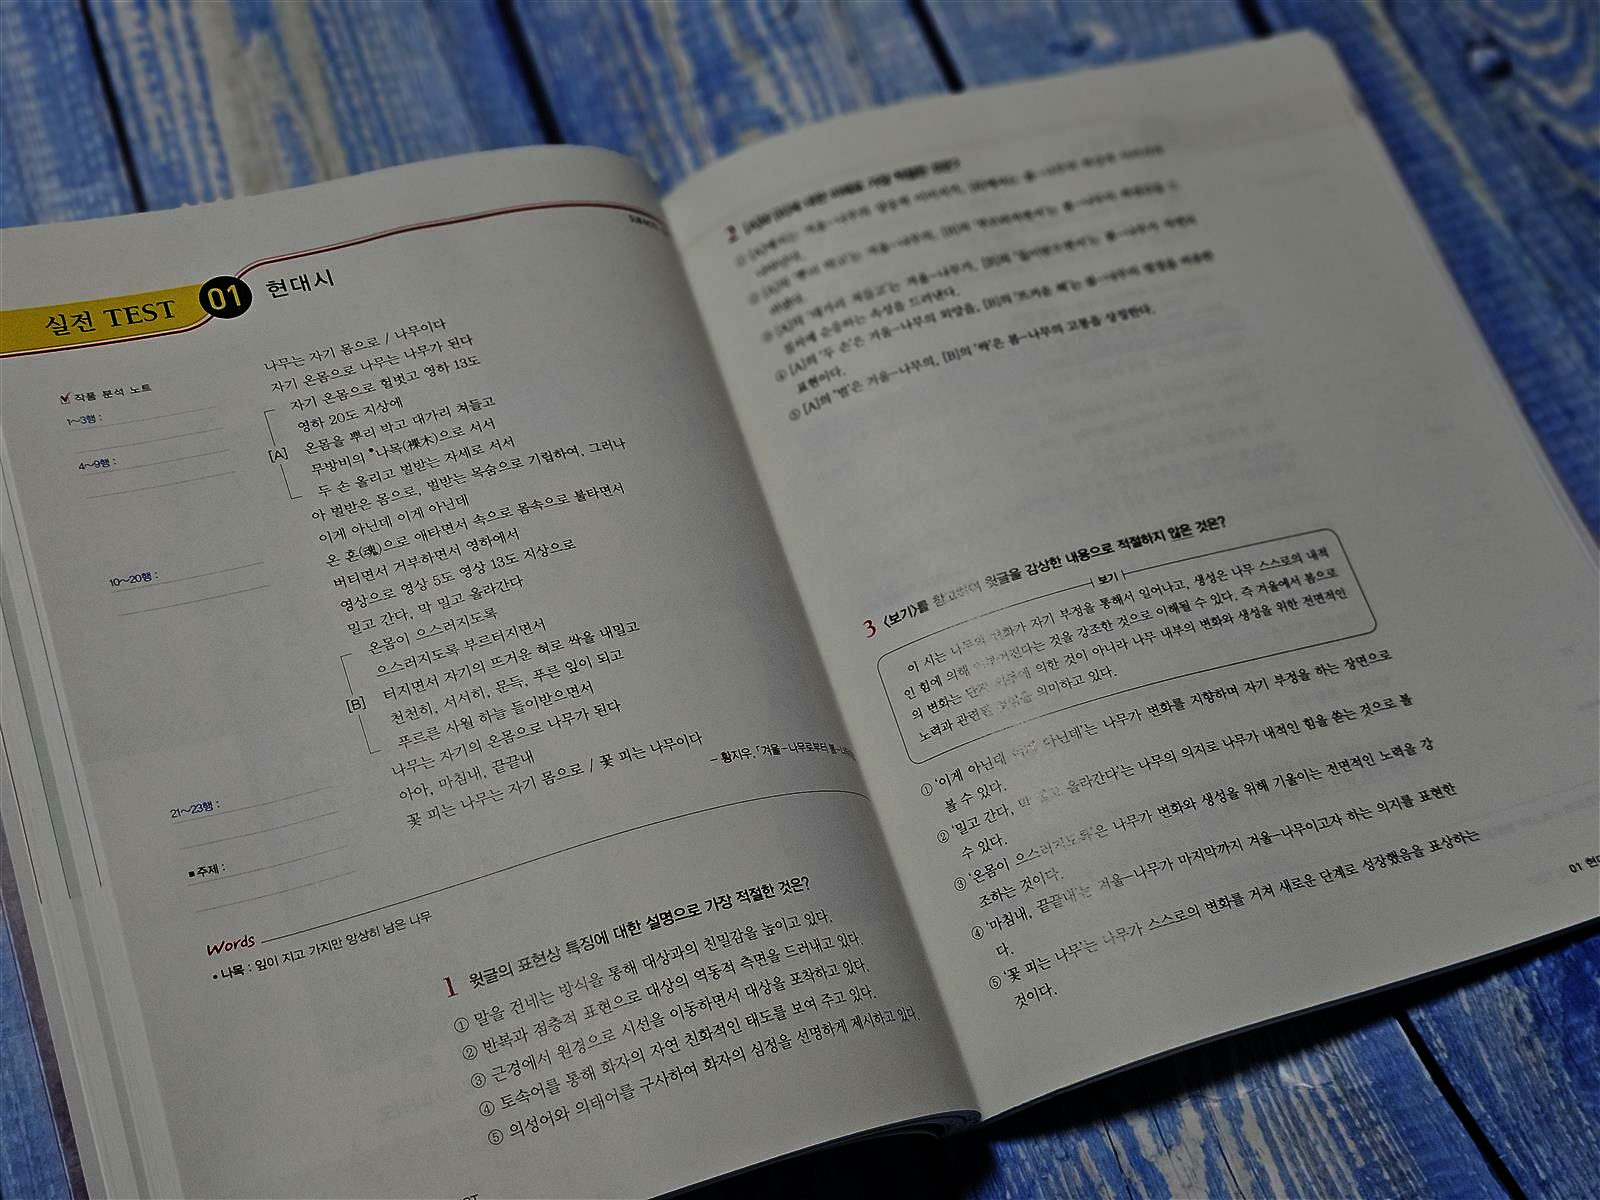 실전 TEST 01 현대시
작품 분석 노트
1~3행 :
4~9행 :
10~20행 :
21~23행 :
■ 주제 :
나무는 자기 몸으로 / 나무이다
자기 온몸으로 나무는 나무가 된다
자기 온몸으로 헐벗고 영하 13도
영하 20도 지상에
온몸을 뿌리 박고 대가리 쳐들고
[A]
무방비의 •나목(裸木)으로 서서
두 손 올리고 벌받는 자세로 서서
아 벌받은 몸으로, 벌받는 목숨으로 기립하여, 그러나
이게 아닌데 이게 아닌데
온 혼(魂)으로 애타면서 속으로 몸속으로 불타면서
버티면서 거부하면서 영하에서
영상으로 영상 5도 영상 13도 지상으로
밀고 간다, 막 밀고 올라간다
온몸이 으스러지도록
으스러지도록 부르터지면서
터지면서 자기의 뜨거운 혀로 싹을 내밀고
[B]
천천히, 서서히, 문득, 푸른 잎이 되고
푸르른 사월 하늘 들이받으면서
나무는 자기의 온몸으로 나무가 된다
아아, 마침내, 끝끝내
꽃 피는 나무는 자기 몸으로 / 꽃 피는 나무이다
- 황지우, 「겨울-나무로부터 봄-
Words
• 나목 : 잎이 지고 가지만 앙상히 남은 나무
1 윗글의 표현상 특징에 대한 설명으로 가장 적절한 것은?
① 말을 건네는 방식을 통해 대상과의 친밀감을 높이고 있다.
② 반복과 점층적 표현으로 대상의 역동적 측면을 드러내고 있다.
③ 근경에서 원경으로 시선을 이동하면서 대상을 포착하고 있다.
④ 토속어를 통해 화자의 자연 친화적인 태도를 보여 주고 있다.
⑤ 의성어와 의태어를 구사하여 화자의 심정을 선명하게 제시하고 있다.
2 [A]와 [B]에 대한 이해로 가장 적절한 것은?
① [A]에서는 겨울-나무의 [B]에서는 봄-나무의
② [A]의 '뿌리 박고'는 겨울-나무의, [B]의 봄-나무의
③ [A]의 '대가리 쳐들고'는 겨울-나무가, [B]의 '들이받으면서'는 봄-나무가 자연의
질서에 순응하는 속성을 드러낸다.
④ [A]의 '두 손'은 겨울-나무의 외양을, [B]의 '뜨거운 혀'는 봄-나무의 열정을 비유한
표현이다.
⑤ [A]의 '벌'은 겨울-나무의, [B]의 '싹'은 봄-나무의 고통을 상징한다.
3 <보기>를 참고하여 윗글을 감상한 내용으로 적절하지 않은 것은?
보기
이 시는 나무의 변화가 자기 부정을 통해서 일어나고, 생성은 나무 스스로의 내적
인 힘에 의해 이루어진다는 것을 강조한 것으로 이해될 수 있다. 즉 겨울에서 봄으로
의 변화는 단지 외부에 의한 것이 아니라 나무 내부의 변화와 생성을 위한 전면적인
노력과 관련된 것임을 의미하고 있다.
① '이게 아닌데 이게 아닌데'는 나무가 변화를 지향하며 자기 부정을 하는 장면으로
볼 수 있다.
② '밀고 간다, 막 밀고 올라간다'는 나무의 의지로 나무가 내적인 힘을 쏟는 것으로 볼
수 있다.
③ '온몸이 으스러지도록'은 나무가 변화와 생성을 위해 기울이는 전면적인 노력을 강
조하는 것이다.
④ '마침내, 끝끝내'는 겨울-나무가 마지막까지 겨울-나무이고자 하는 의지를 표현한
다.
⑤ '꽃 피는 나무'는 나무가 스스로의 변화를 거쳐 새로운 단계로 성장했음을 표상하는
것이다.
01 현